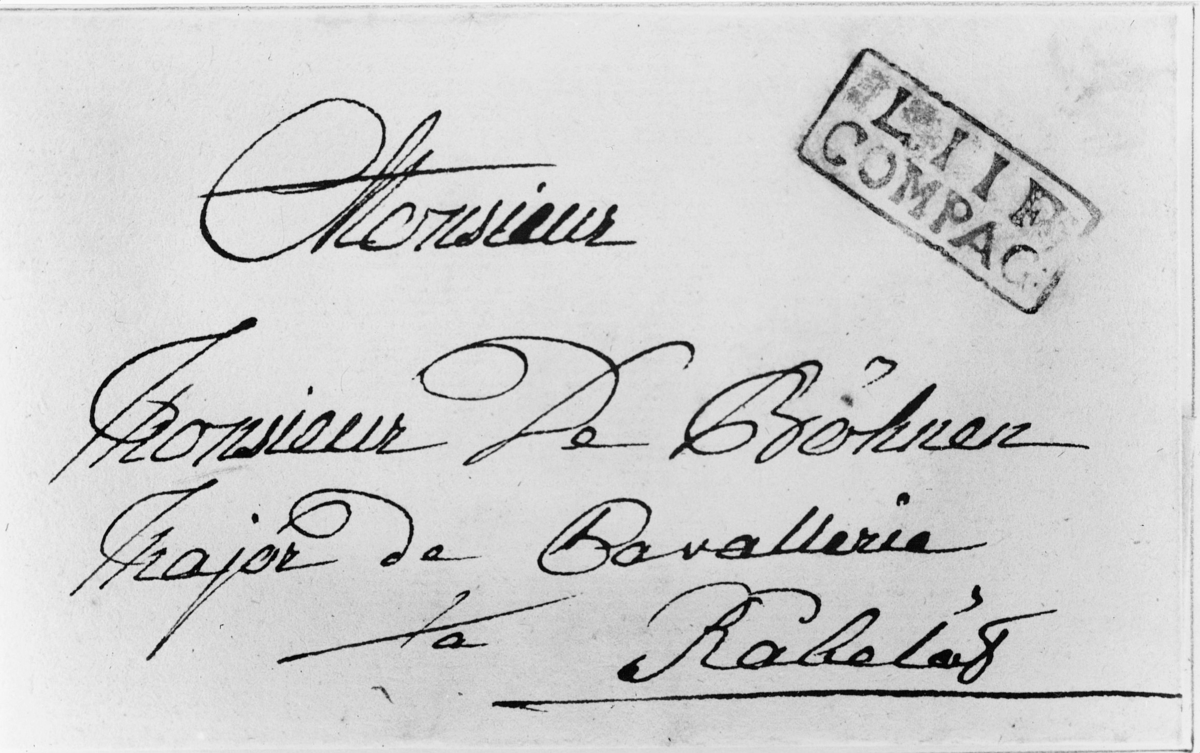 LIIF
COMPAG
Monsieur
Monsieur De Böhnen
Major de Cavallerie
ta